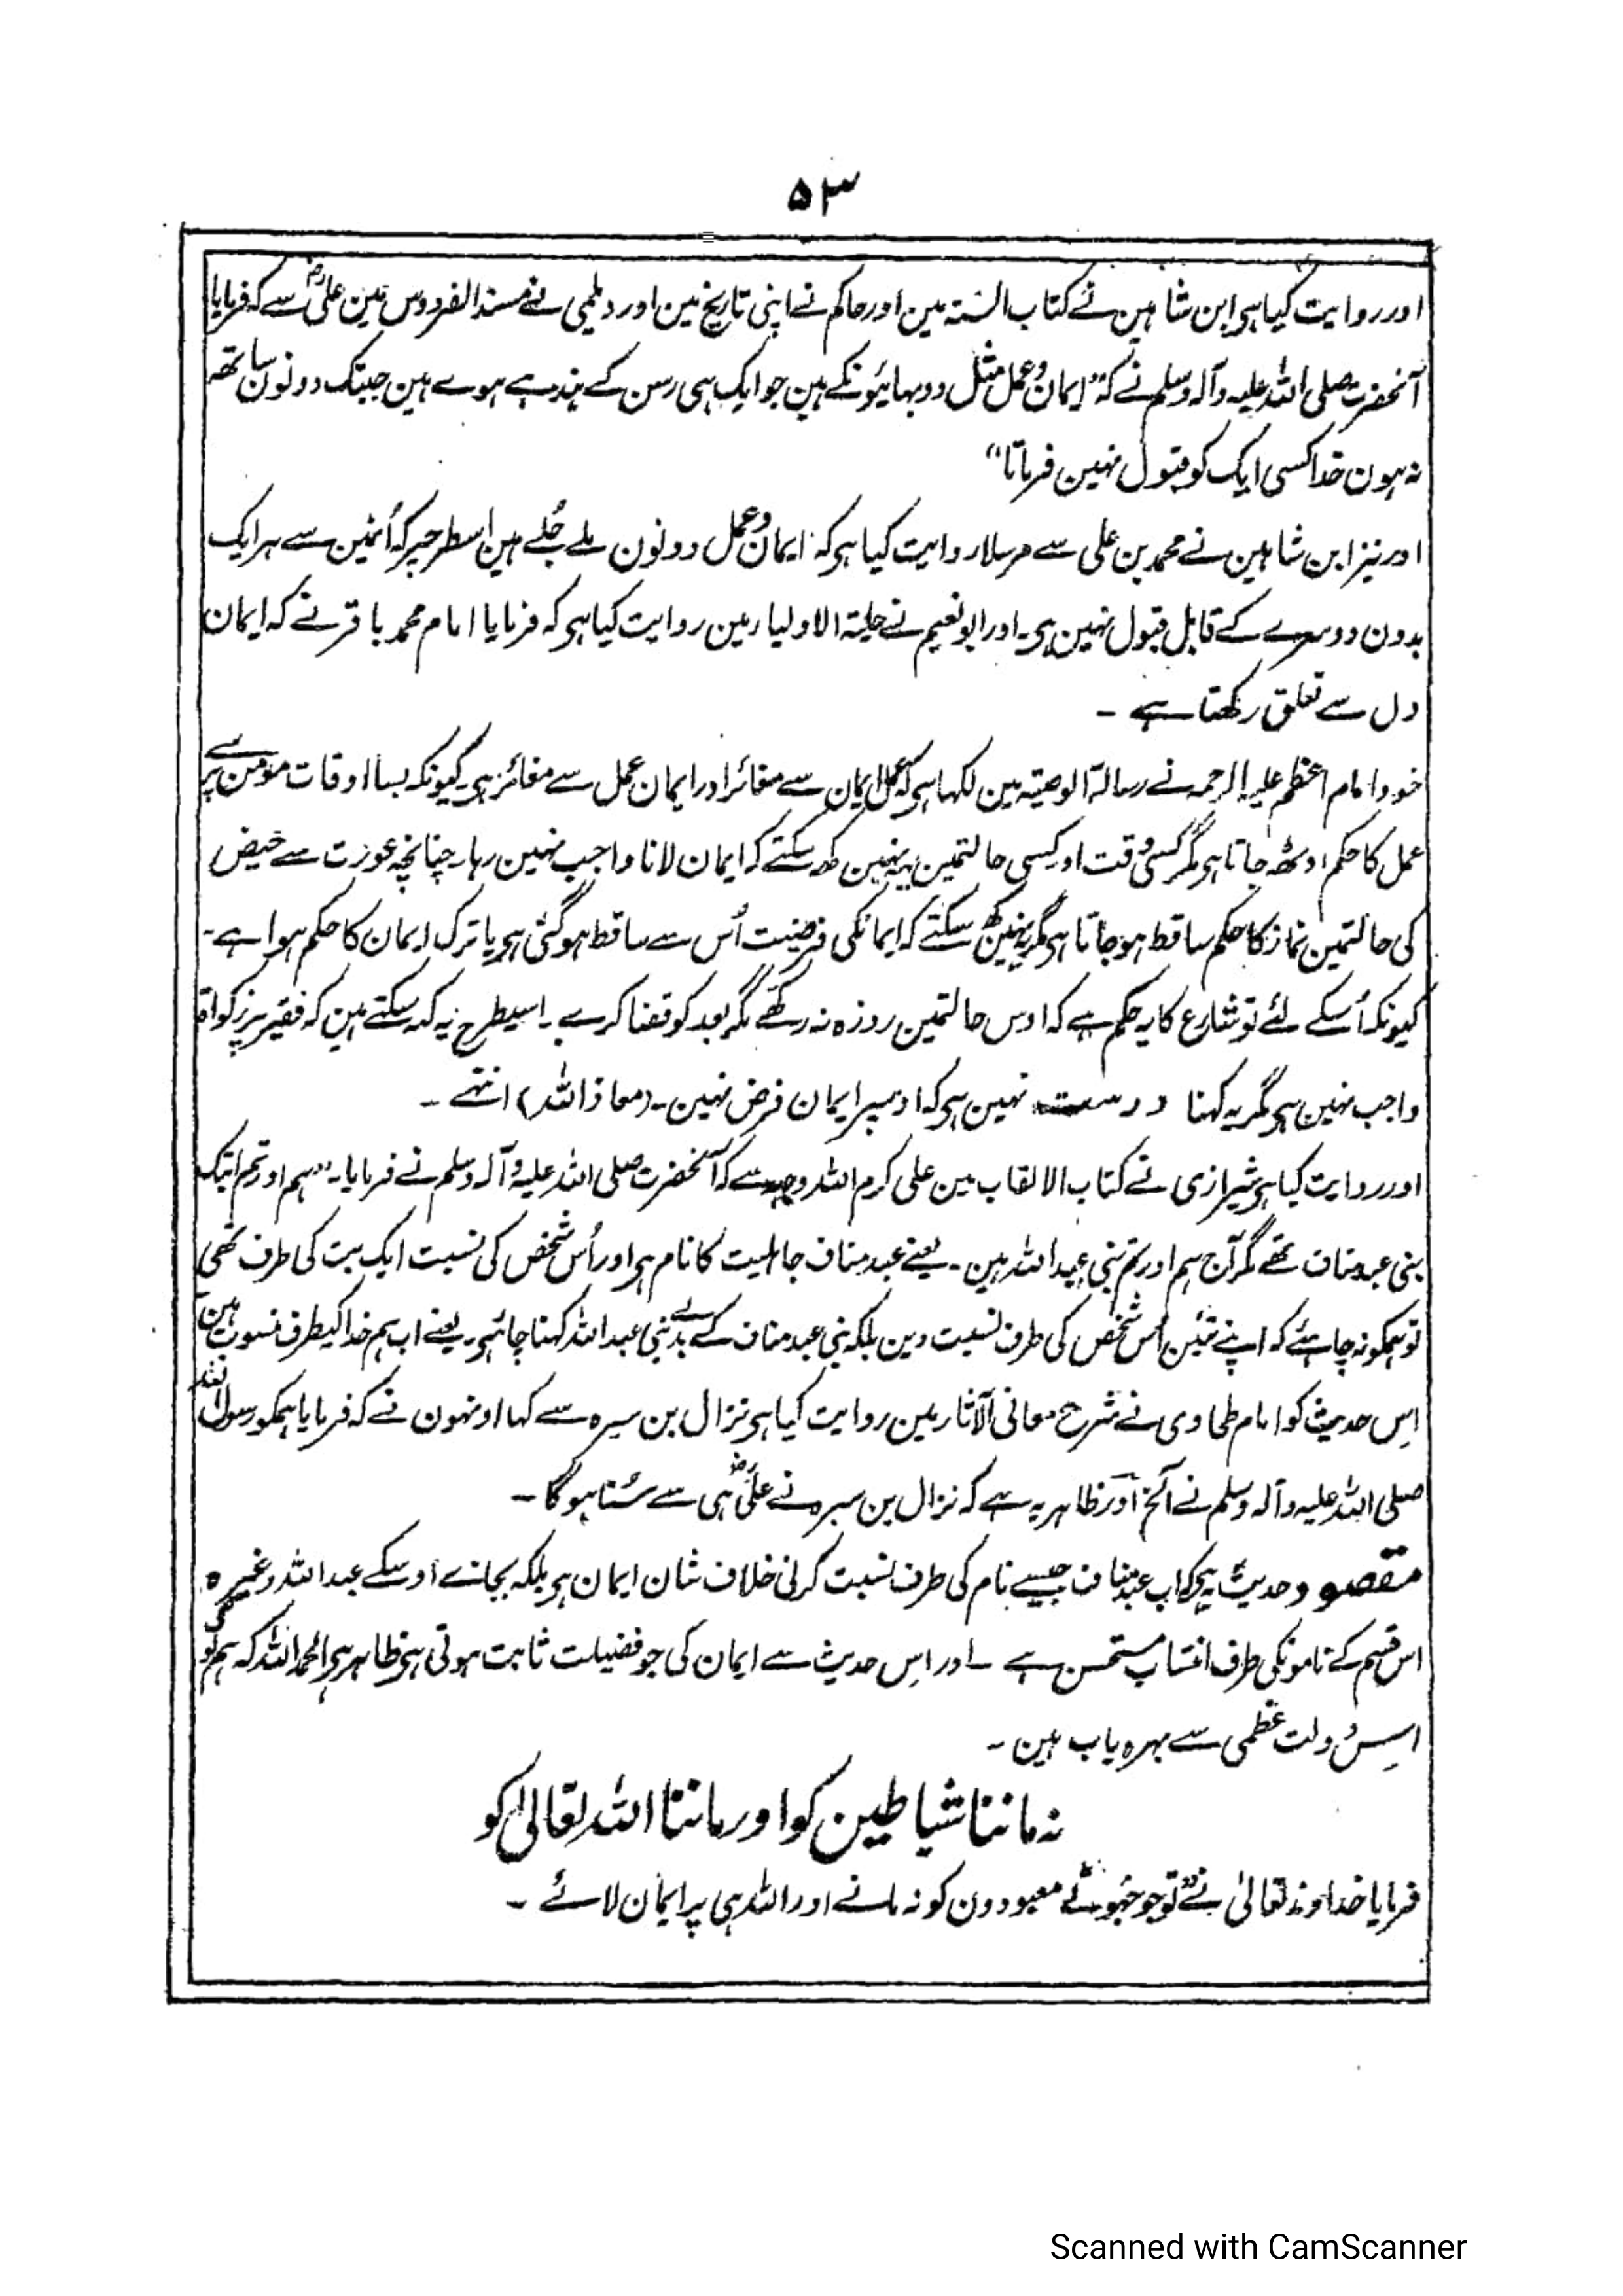 ۵۳
اور روایت کیا ہی ابن شاہین نے کتاب السنۃ مین اور حاکم نے اپنی تاریخ مین اور دیلمی نے مسند الفردوس مین علی رضؓ سے کہ فرمایا
آنحضرت صلی اللہ علیہ وآلہ وسلم نے کہ "ایمان و عمل مثل دو بہائیونکے ہین جو ایک ہی رسن کے بندہے ہوے ہین جبتک دونون ساتھ
نہ ہون خدا کسی ایک کو قبول نہین فرماتا"
اور نیز ابن شاہین نے محمد بن علی سے مرسلا روایت کیا ہی کہ ایمان و عمل دونون ملے جُلے ہین اسطرحپر کہ اُنمین سے ہر ایک
بدون دوسرے کے قابل قبول نہین ہی۔ اور ابو نعیم نے حلیۃ الاولیا رمین روایت کیا ہی کہ فرمایا امام محمد باقر نے کہ ایمان
دل سے تعلق رکھتا ہے ۔
خود امام اعظم علیہ الرحمہ نے رسالۃ الوصیتہ مین لکہا ہی کہ عمل ایمان سے مغائر اور ایمان عمل سے مغائر ہی۔ کیونکہ بسا اوقات مومن پر سے
عمل کا حکم اوٹھ جاتا ہی مگر کسی وقت اور کسی حالتمین یہ نہین کھ سکتے کہ ایمان لانا واجب نہین رہا۔ چنانچہ عورت سے حیض
کی حالتمین نماز کا حکم ساقط ہو جاتا ہی مگر یہ نہین کھ سکتے کہ ایمانکی فرضیت اُس سے ساقط ہو گئی ہی یا ترک ایمان کا حکم ہوا ہے۔
کیونکہ اُسکے لئے تو شارع کا یہ حکم ہے کہ اوس حالتمین روزہ نہ رکھے مگر بعد کو قضا کرے ۔ اسیطرح یہ کہ سکتے ہین کہ فقیر پر زکواۃ
واجب نہین ہی مگر یہ کہنا درست نہین ہی کہ اوسپر ایمان فرض نہین ۔ (معاذ اللہ) انتہے ۔
اور روایت کیا ہی شیرازی نے کتاب الالقاب مین علی کرم اللہ وجہہ سے کہ آنحضرت صلی اللہ علیہ وآلہ وسلم نے فرمایا۔ "ہم اور تم ابتک
بنی عبد مناف تھے مگر آج ہم اور تم بنی عبد اللہ ہین ۔ یعنے عبد مناف جاہلیت کا نام ہی اور اُس شخص کی نسبت ایک بت کی طرف تھی
تو ہمکو نہ چاہئے کہ اپنے تئین اُس شخص کی طرف نسبت دین بلکہ بنی عبد مناف کے بدلے بنی عبد اللہ کہنا چاہئی ۔ یعنے اب ہم خدا کیطرف منسوب ہین
اِس حدیث کو امام طحاوی نے شرح معانی الآثار مین روایت کیا ہی نزال بن سبرہ سے کہا اونہون نے کہ فرمایا ہمکو رسول اللہ
صلی اللہ علیہ وآلہ وسلم نے الخ اور ظاہر یہ ہے کہ نزال بن سبرہ نے علی رضؓ ہی سے سُنا ہوگا ۔
مقصود حدیث یہ ہی کہ اب عبد مناف جیسے نام کی طرف نسبت کرنی خلاف شان ایمان ہی بلکہ بجائے اوسکے عبد اللہ وغیرہ
اس قسم کے نامونکی طرف انتساب مستحسن ہے ۔ اور اِس حدیث سے ایمان کی جو فضیلت ثابت ہوتی ہی ظاہر ہی الحمد للہ کہ ہم لوگ
اسِ دولت عظمی سے بہرہ یاب ہین ۔
نہ ماننا شیاطین کو اور ماننا اللہ تعالیٰ کو
فرمایا خداوند تعالیٰ نے "تو جو جہوٹے معبودون کو نہ مانے اور اللہ ہی پر ایمان لائے ۔
Scanned with CamScanner